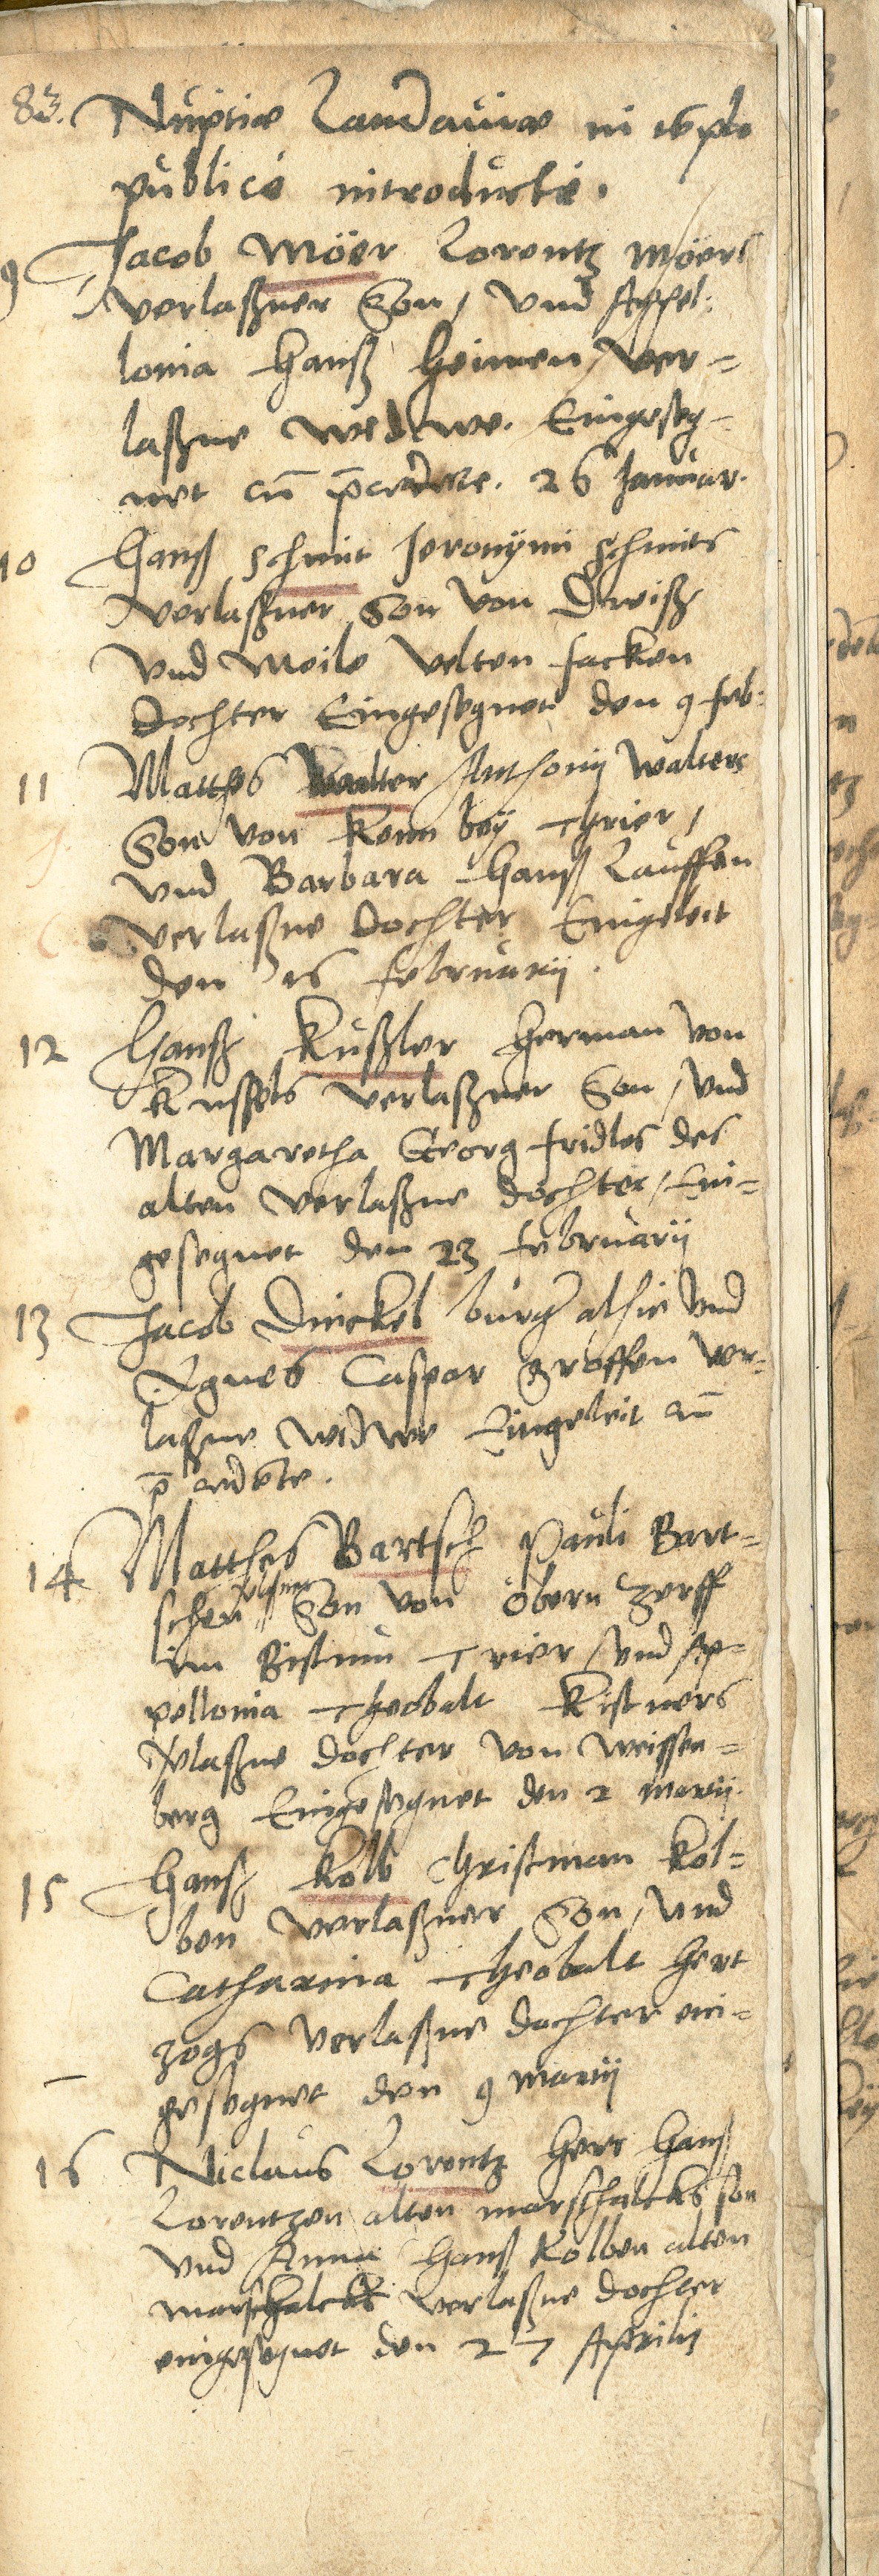 83. Nuptiæ Landauiæ in templo
publicè introductæ.
9 Jacob Möer Lorentz Möers
verlaßner Son, und Appel:
lonia Hanß Heimen ver=
laßne wedwe. Eingeseg=
net cū p̄cedēte. 26 Januar.
10 Hanß Schmit Jeronymi Schmits
verlaßner Son von
und Meile Velten facken
Dochter Eingesegnet den 9 feb:
11 Matthes Walter Anthonij Walters
Son von Kenn bey Thrier,
und Barbara Hanß Lauffen
verlaßne Dochter Eingeleit
den 16 februarij.
12 Hanß Kußler Herman von
Kussels verlaßner Son, und
Margaretha Georg fridles des
alten verlaßne dochter, Ein=
gesegnet den 23 februarij
13 Jacob Dinckel burger alhie und
Agnes Caspar Groffen ver=
laßne widwe Eingeleit cū
p̄cedēte.
14 Matthes Bartsch Pauli Bart=
schen vlasner Son von Obern Zerff
im Bistum Trier, und Ap=
pellonia Theobalt Kistners
vlaßne dochter von Weissen=
berg Eingesegnet den 2 Martij.
15 Hanß Kolb Christman Kol=
ben verlaßner Son, und
Catharina Theobalt Hert
zogs verlaßne dochter ein=
gesegnet den 9 Martij
16 Niclaus Lorentz Herr Hanß
Lorentzen alten marschalcks son
und Anna Hanß Kolben alten
marschalcks verlaßne dochter
eingesegnet den 27 Aprilis